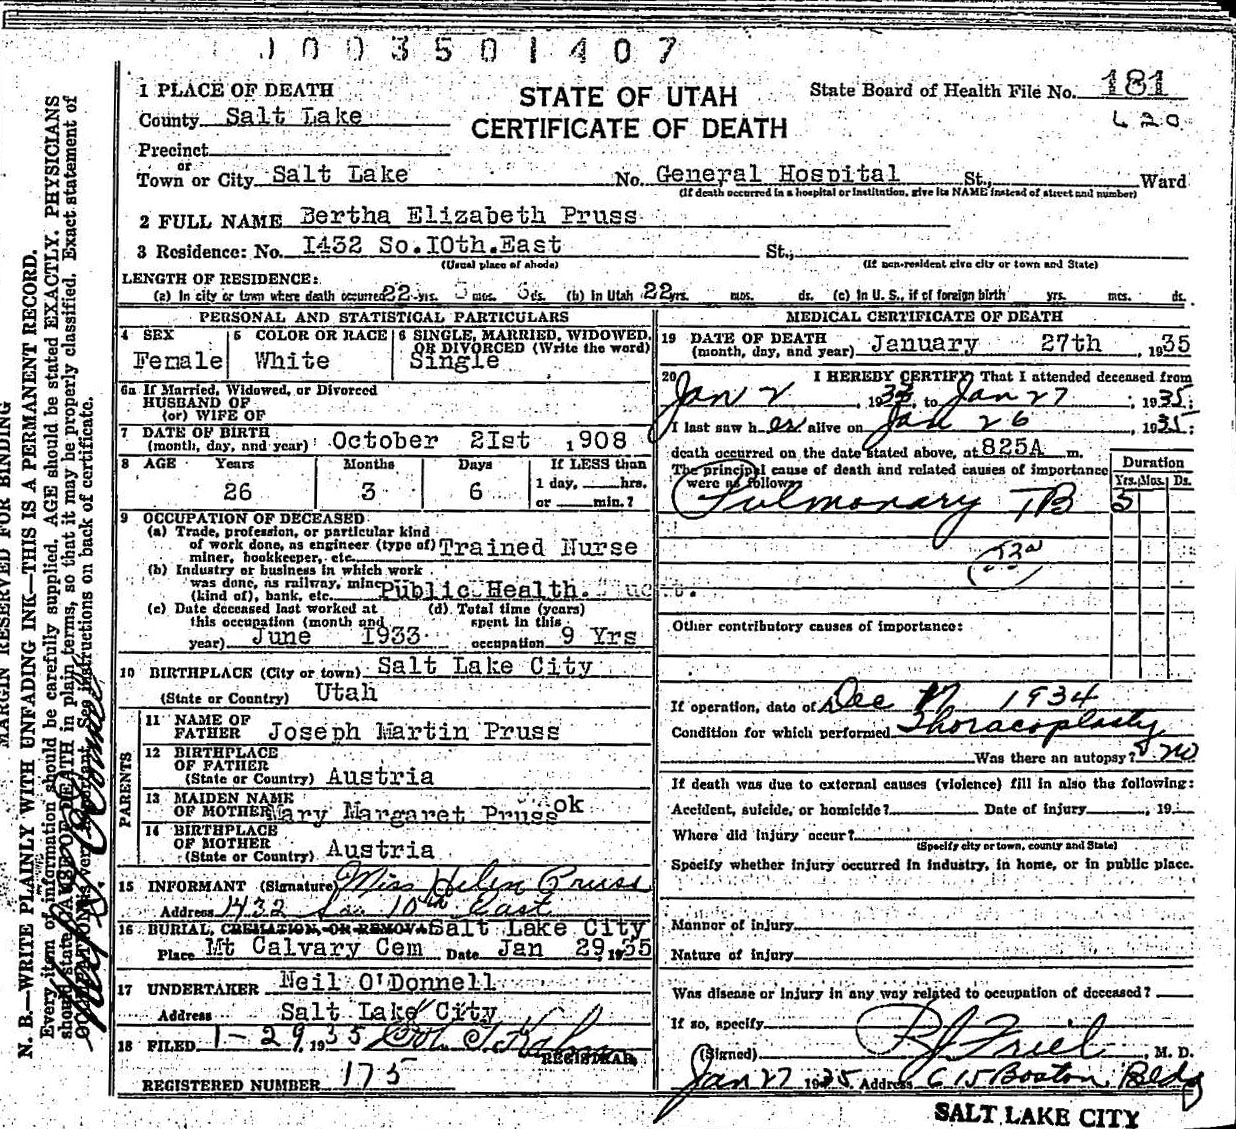 1003501407
1 PLACE OF DEATH
STATE OF UTAH
CERTIFICATE OF DEATH
State Board of Health File No. 181
620
County Salt Lake
Precinct
or
Town or City Salt Lake No. General Hospital St., Ward
(If death occurred in a hospital or institution, give its NAME instead of street and number)
2 FULL NAME Bertha Elizabeth Pruss
3 Residence: No. I432 So. I0th. East St.,
(Usual place of abode) (If non-resident give city or town and State)
LENGTH OF RESIDENCE:
(a) In city or town where death occurred 22 yrs. 3 mos. 6 ds. (b) In Utah 22 yrs. mos. ds. (c) In U. S., if of foreign birth yrs. mcs. ds.
PERSONAL AND STATISTICAL PARTICULARS
4 SEX Female
5 COLOR OR RACE White
6 SINGLE, MARRIED, WIDOWED, OR DIVORCED (Write the word) Single
6a If Married, Widowed, or Divorced
HUSBAND OF
(or) WIFE OF
7 DATE OF BIRTH
(month, day, and year) October 2Ist , 1908
8 AGE Years Months Days If LESS than
26 3 6 1 day, hrs.
or min.?
9 OCCUPATION OF DECEASED
(a) Trade, profession, or particular kind
of work done, as engineer (type of) Trained Nurse
miner, bookkeeper, etc.
(b) Industry or business in which work
was done, as railway, mine
(kind of), bank, etc. Public Health.
(c) Date deceased last worked at (d) Total time (years)
this occupation (month and spent in this
year) June I933 occupation 9 Yrs
10 BIRTHPLACE (City or town) Salt Lake City
(State or Country) Utah
PARENTS
11 NAME OF
FATHER Joseph Martin Pruss
12 BIRTHPLACE
OF FATHER
(State or Country) Austria
13 MAIDEN NAME
OF MOTHER Mary Margaret Pruss ok
14 BIRTHPLACE
OF MOTHER
(State or Country) Austria
15 INFORMANT (Signature) Miss Helen Pruss
Address 1432 So. 10th East
16 BURIAL, CREMATION, OR REMOVAL Salt Lake City
Place Mt Calvary Cem Date Jan 29, 1935
17 UNDERTAKER Neil O'Donnell
Address Salt Lake City
18 FILED 1-29, 1935
REGISTRAR
REGISTERED NUMBER 175
MEDICAL CERTIFICATE OF DEATH
19 DATE OF DEATH
(month, day, and year) January 27th , 1935
20 I HEREBY CERTIFY That I attended deceased from
Jan 2 , 193 , to Jan 27 , 1935;
I last saw h er alive on Jan 26 , 1935;
death occurred on the date stated above, at 825A m.
The principal cause of death and related causes of importance
were as follows: Duration
Yrs. Mos. Ds.
Pulmonary TB 5
Other contributory causes of importance:
If operation, date of Dec 17 1934
Condition for which performed Thoracoplasty
Was there an autopsy? no
If death was due to external causes (violence) fill in also the following:
Accident, suicide, or homicide? Date of injury , 19
Where did injury occur?
(Specify city or town, county and State)
Specify whether injury occurred in industry, in home, or in public place.
Manner of injury
Nature of injury
Was disease or injury in any way related to occupation of deceased?
If so, specify
(Signed) R J Friel , M. D.
Jan 27 1935 Address 615 Boston Bldg
SALT LAKE CITY
MARGIN RESERVED FOR BINDING
N. B.—WRITE PLAINLY WITH UNFADING INK—THIS IS A PERMANENT RECORD.
Every item of information should be carefully supplied. AGE should be stated EXACTLY. PHYSICIANS
should state CAUSE OF DEATH in plain terms, so that it may be properly classified. Exact statement of
OCCUPATION is very important. See instructions on back of certificate.